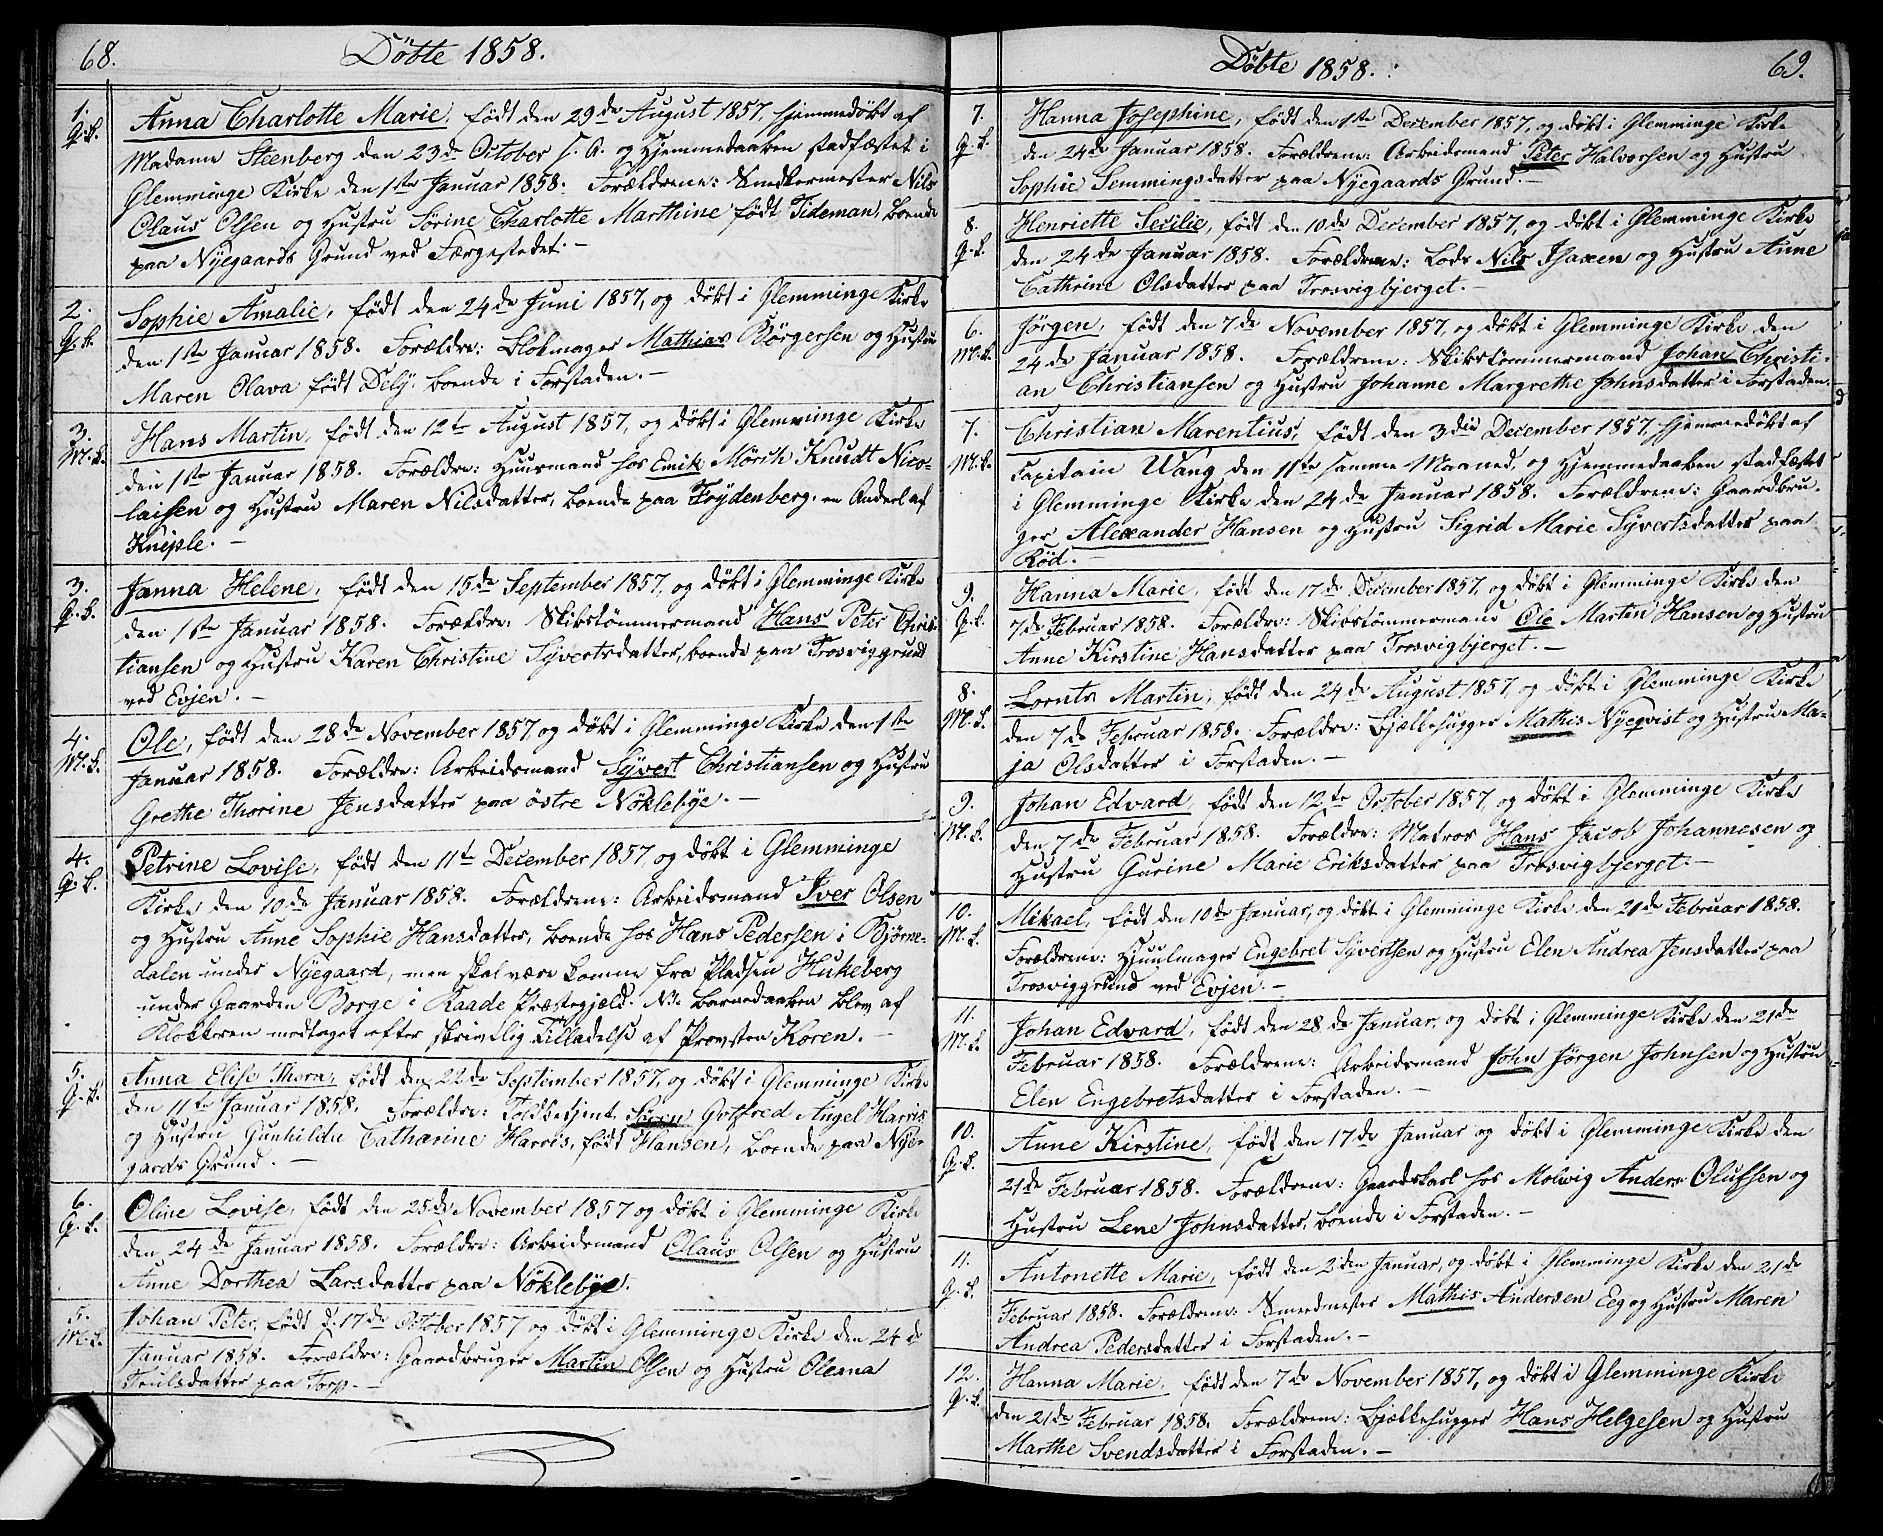 68.
Döbte 1858.
1.
Q.K.
Anna Charlotte Marie, født den 29de August 1857, hjemmedøbt af
Madame Steenberg den 23de October s. A. og Hjemmedaaben stadfæstet i
Glemminge Kirke den 1ste Januar 1858. Forældrene: Snedkermester Nils
Olaus Olsen og Hustru Sörine Charlotte Marthine født Tideman, boende
paa Nyegaards Grund ved Færgestedet.-
2.
Q.K.
Sophie Amalie, født den 24de Juni 1857, og døbt i Glemminge Kirke
den 1ste Januar 1858. Forældre: Blokmager Mathias Börgersen og Hustru
Maren Olava født Dely. boende i Forstaden.-
3.
M.K.
Hans Martin, født den 12te August 1857, og døbt i Glemminge Kirke
den 1ste Januar 1858. Forældre: Huusmand hos Emik Mörch Knudt Nico-
laisen og Hustru Maren Nilsdatter, boende paa Frydenberg, en Andeel af
Kniple.-
3.
Q.K.
Janna Helene, født den 15de September 1857, og døbt i Glemminge Kirke
den 1ste Januar 1858. Forældre: Skibstømmermand Hans Peter Chris-
tiansen og Hustru Karen Christine Syvertsdatter, boende paa Trosviggrund
ved Evjen.-
4.
M.K.
Ole, født den 28de November 1857 og døbt i Glemminge Kirke den 1ste
Januar 1858. Forældre: Arbeidsmand Syvert Christiansen og Hustru
Grethe Thorine Jensdatter paa östre Nöklebye.-
4.
Q.K.
Petrine Lovise, født den 11te December 1857 og døbt i Glemminge
Kirke den 10de Januar 1858. Forældrene: Arbeidsmand Iver Olsen
og Hustru Anne Sophie Hansdatter, boende hos Hans Pedersen i Bjørne-
dalen under Nyegaard, men skal være komne fra Pladsen Hukeberg
under Gaarden Borge i Raade Præstegjæld. NB. Barnedaaben blev af
Klokkeren modtaget efter skrivtlig Tilladelse af Provsten Koren.-
5.
Q.K.
Anna Elise Thora, født den 22de September 1857, og døbt i Glemminge Kirke
den 11te Januar 1858. Forældre: Toldbetjent Sören Gotfred Angel Harris
og Hustru Gunhilda Catharine Harris, født Hansen, boende paa Nye-
gaards Grund.-
6.
Q.K.
Oline Lovise, født den 25de November 1857 og døbt i Glemminge Kirke
den 24de Januar 1858. Forældre: Arbeidsmand Olaus Olsen og Hustru
Anne Dorthea Larsdatter paa Nöklebye.
5.
M.K.
Johan Peter, født d. 17de October 1857 og døbt i Glemminge Kirke den 24de
Januar 1858. Forældre: Gaardbruger Martin Olsen og Hustru Oleana
Truulsdatter paa Torp.-
Döbte 1858.
69.
7.
Q.K.
Hanna Josephine, født den 1ste December 1857, og døbt i Glemminge Kirke
den 24de Januar 1858. Forældrene: Arbeidsmand Peter Halvorsen og Hustru
Sophie Semmingsdatter paa Nyegaards Grund.-
8.
Q.K.
Henriette Secilie, født den 10de December 1857, og døbt i Glemminge Kirke
den 24de Januar 1858. Forældrene: Lods Nils Isaxen og Hustru Anne
Cathrine Olsdatter paa Trosvigbjerget.-
6.
M.K.
Jörgen, født den 7de November 1857, og døbt i Glemminge Kirke den
24de Januar 1858. Forældrene: Skibstømmermand Johan Christi-
an Christiansen og Hustru Johanne Margrethe Johnsdatter i Forstaden.
7.
M.K.
Christian Marentius, født den 3die December 1857, hjemmedøbt af
Capitain Wang den 11te samme Maaned, og Hjemmedaaben stadfæstet
i Glemminge Kirke den 24de Januar 1858. Forældrene: Gaardbru-
ger Alexander Hansen og Hustru Sigrid Marie Syvertsdatter paa
Röd.-
9.
Q.K.
Hanna Marie, født den 17de December 1857, og døbt i Glemminge Kirke den
7de Februar 1858. Forældre: Skibstømmermand Ole Martin Hansen og Hustru
Anne Kirstine Hansdatter paa Trosvigbjerget.-
8.
M.K.
Lornts Martin, født den 24de August 1857, og døbt i Glemminge Kirke
den 7de Februar 1858. Forældre: Bjælkehugger Mathis Nyeqvist og Hustru Ma-
ja Olsdatter i Forstaden.-
9.
M.K.
Johan Edvard, født den 12te October 1857, og døbt i Glemminge Kirke
den 7de Februar 1858. Forældre: Matros Hans Jacob Johannesen og
Hustru Gurine Marie Eriksdatter paa Trosvigbjerget.-
10.
M.K.
Mikael, født den 10de Januar, og døbt i Glemminge Kirke den 21de Februar 1858.
Forældrene: Hjuulmager Engebret Syvertsen og Hustru Elen Andrea Jensdatter paa
Trosviggrund ved Evjen.-
11.
M.K.
Johan Edvard, født den 28de Januar, og døbt i Glemminge Kirke den 21de
Februar 1858. Forældrene: Arbeidsmand John Jörgen Johnsen og Hustru
Elen Engebretsdatter i Forstaden.-
10.
Q.K.
Anne Kirstine, født den 17de Januar og døbt i Glemminge Kirke den
21de Februar 1858. Forældrene: Gaardskarl hos Molvig Anders Olufsen og
Hustru Lene Johnsdatter, boende i Forstaden.-
11.
Q.K.
Antonette Marie, født den 2den Januar, og døbt i Glemminge Kirke den 21de
Februar 1858. Forældrene: Smedmester Mathis Andersen Eeg og Hustru Maren
Andrea Pedersdatter i Forstaden.-
12.
Q.K.
Hanna Marie, født den 7de November 1857, og døbt i Glemminge Kirke
den 21de Februar 1858. Forældrene: Bjælkehugger Hans Helgesen og Hustru
Marthe Svendsdatter i Forstaden.-